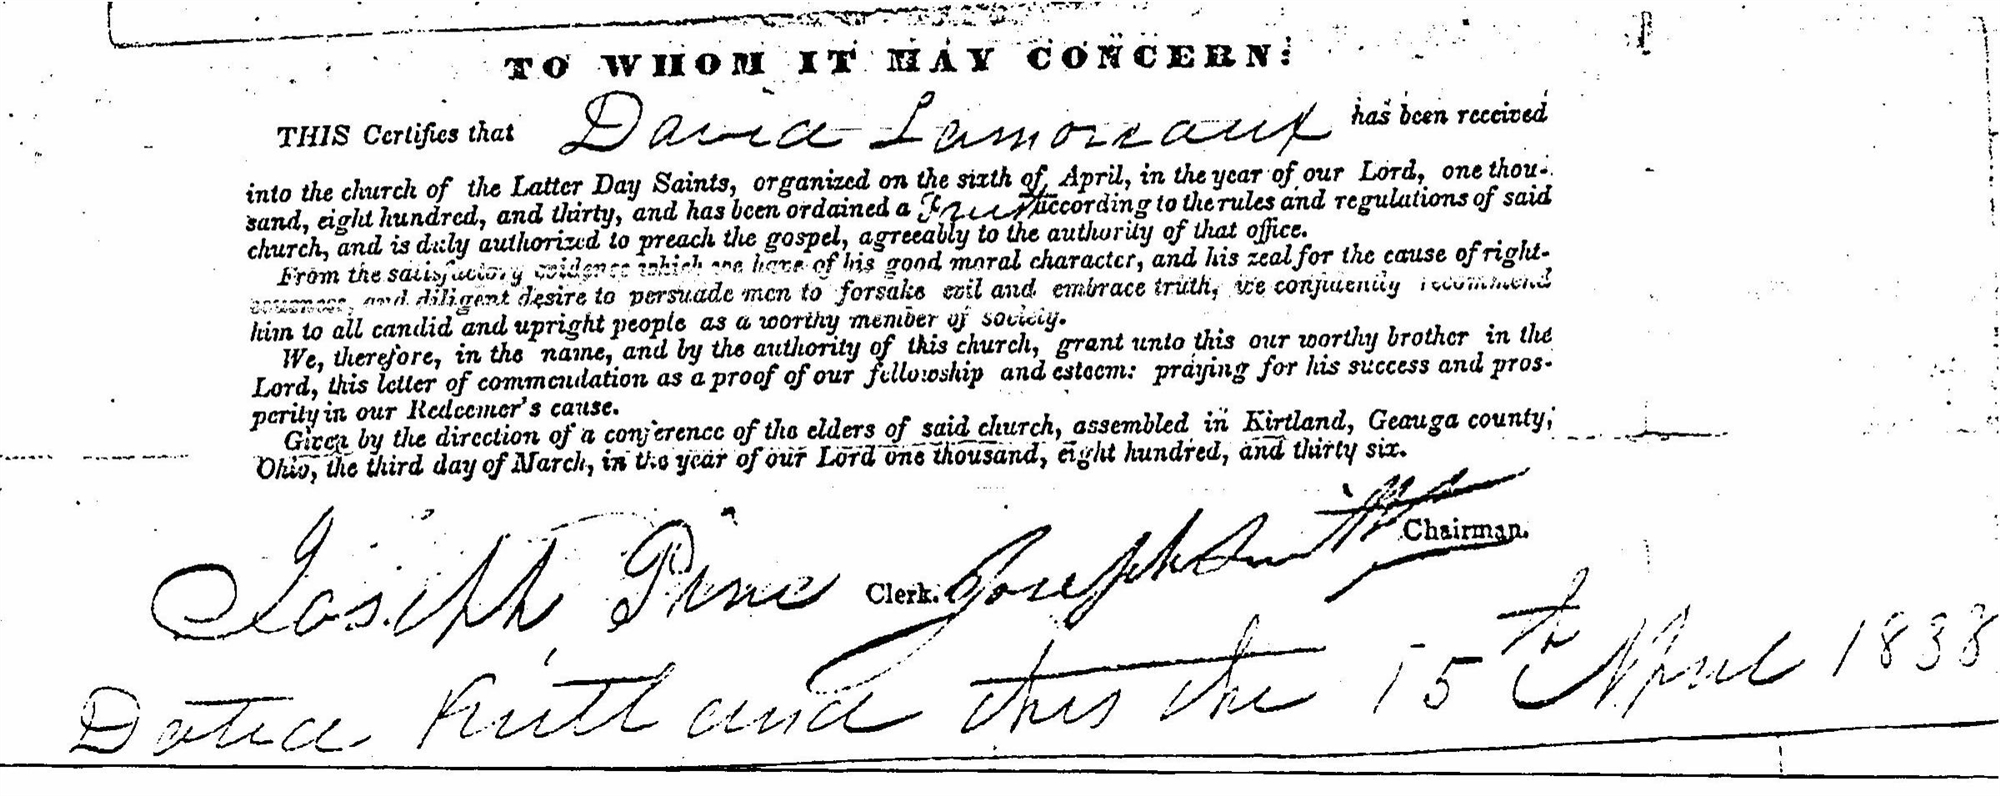 TO WHOM IT MAY CONCERN:
THIS Certifies that David Lamoreaux has been received
into the church of the Latter Day Saints, organized on the sixth of April, in the year of our Lord, one thou-
sand, eight hundred, and thirty, and has been ordained a Priest according to the rules and regulations of said
church, and is duly authorized to preach the gospel, agreeably to the authority of that office.
From the satisfactory evidence which we have of his good moral character, and his zeal for the cause of right-
eousness, and diligent desire to persuade men to forsake evil and embrace truth, we confidently recommend
him to all candid and upright people as a worthy member of society.
We, therefore, in the name, and by the authority of this church, grant unto this our worthy brother in the
Lord, this letter of commendation as a proof of our fellowship and esteem: praying for his success and pros-
perity in our Redeemer's cause.
Given by the direction of a conference of the elders of said church, assembled in Kirtland, Geauga county,
Ohio, the third day of March, in the year of our Lord one thousand, eight hundred, and thirty six.
Joseph Smith Chairman.
Joseph Pine Clerk.
Dated Kirtland this the 15th April 1838